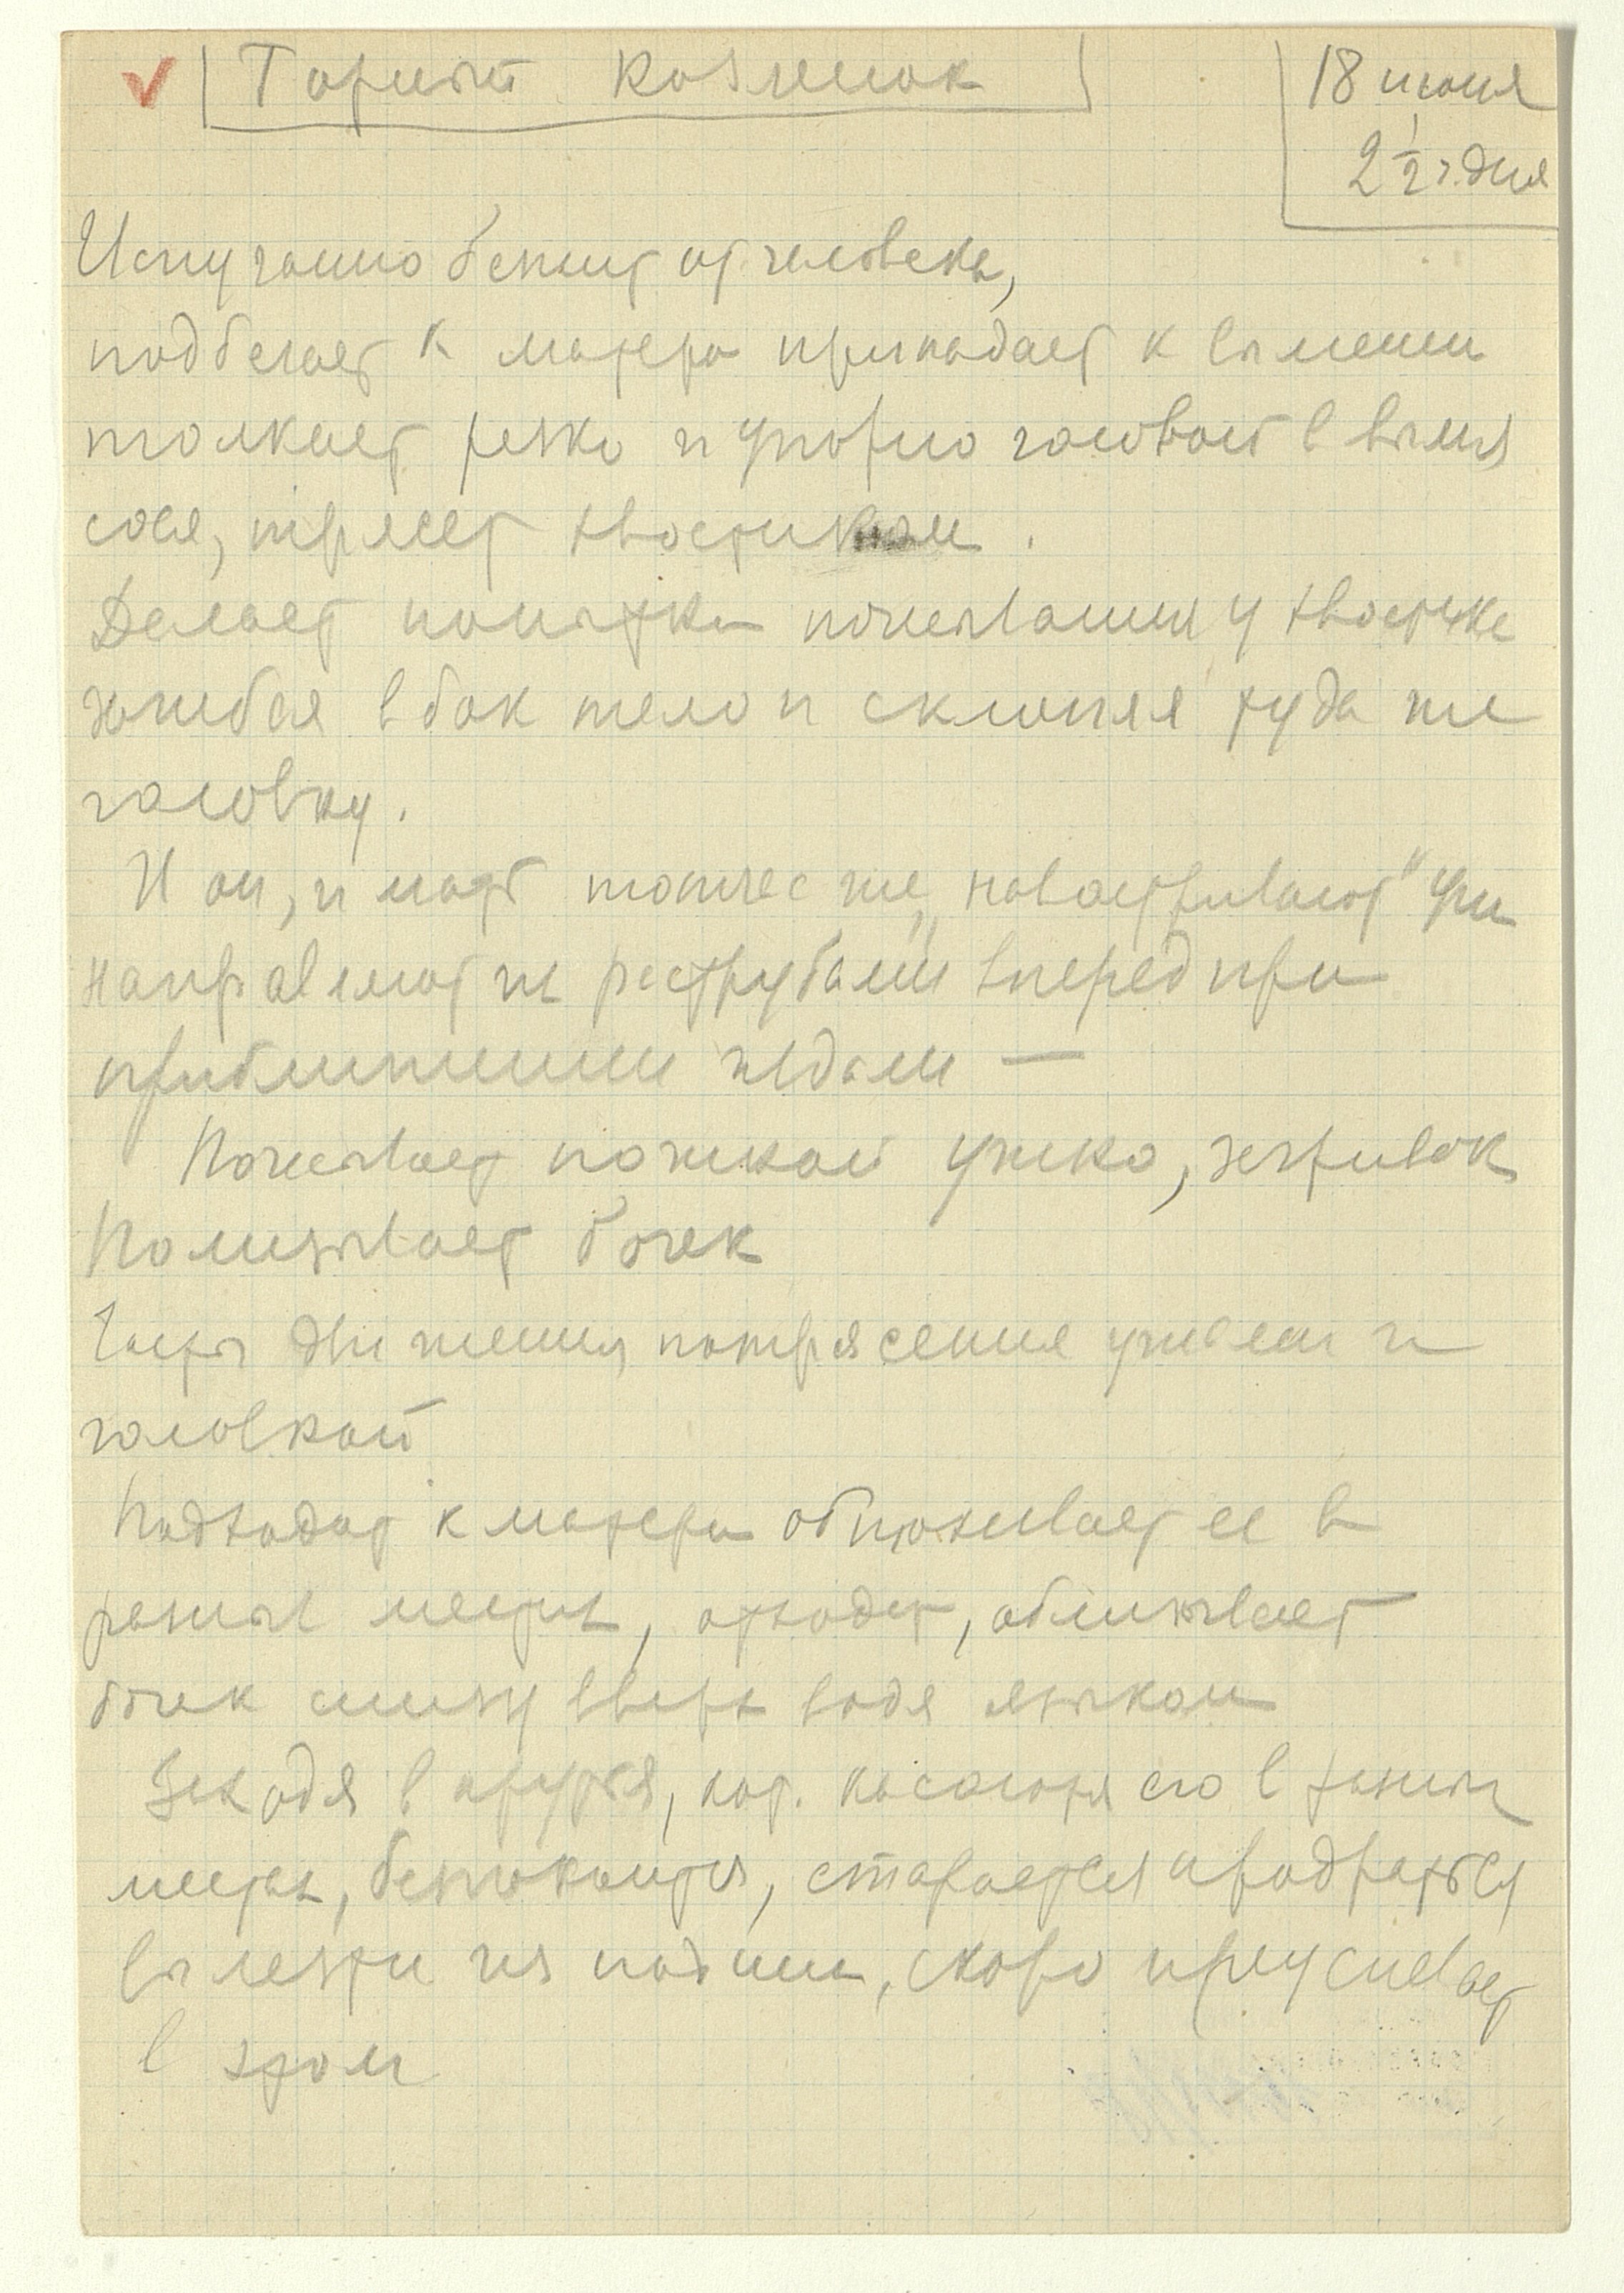 Горный козленок
18 июня
2 1/2 ч. дня
Испуганно бежит от человека,
подбегает к матери припадает к вымени
толкает резко и упорно головой в вымя
сося, трясет хвостиком.
Делает попытки почесывания у хвостика
загибая в бок тело и склоняя туда же
головку.
И он, и мать тотчас же „навастривают" уши
направляют их раструбами вперед при
приближении людей —
Почесывает ножкой ушко, загривок
Полизывает бочек
Часты движения потрясения ушами и
головкой
Подходит к матери обнюхивает ее в
разных местах, отходит, облизывает
бочек снизу вверх водя языком
Заходя в кусты, кот. касаются его в
местах, беспокоится, старается продраться
вылезти из под них, скоро преуспевает
в этом